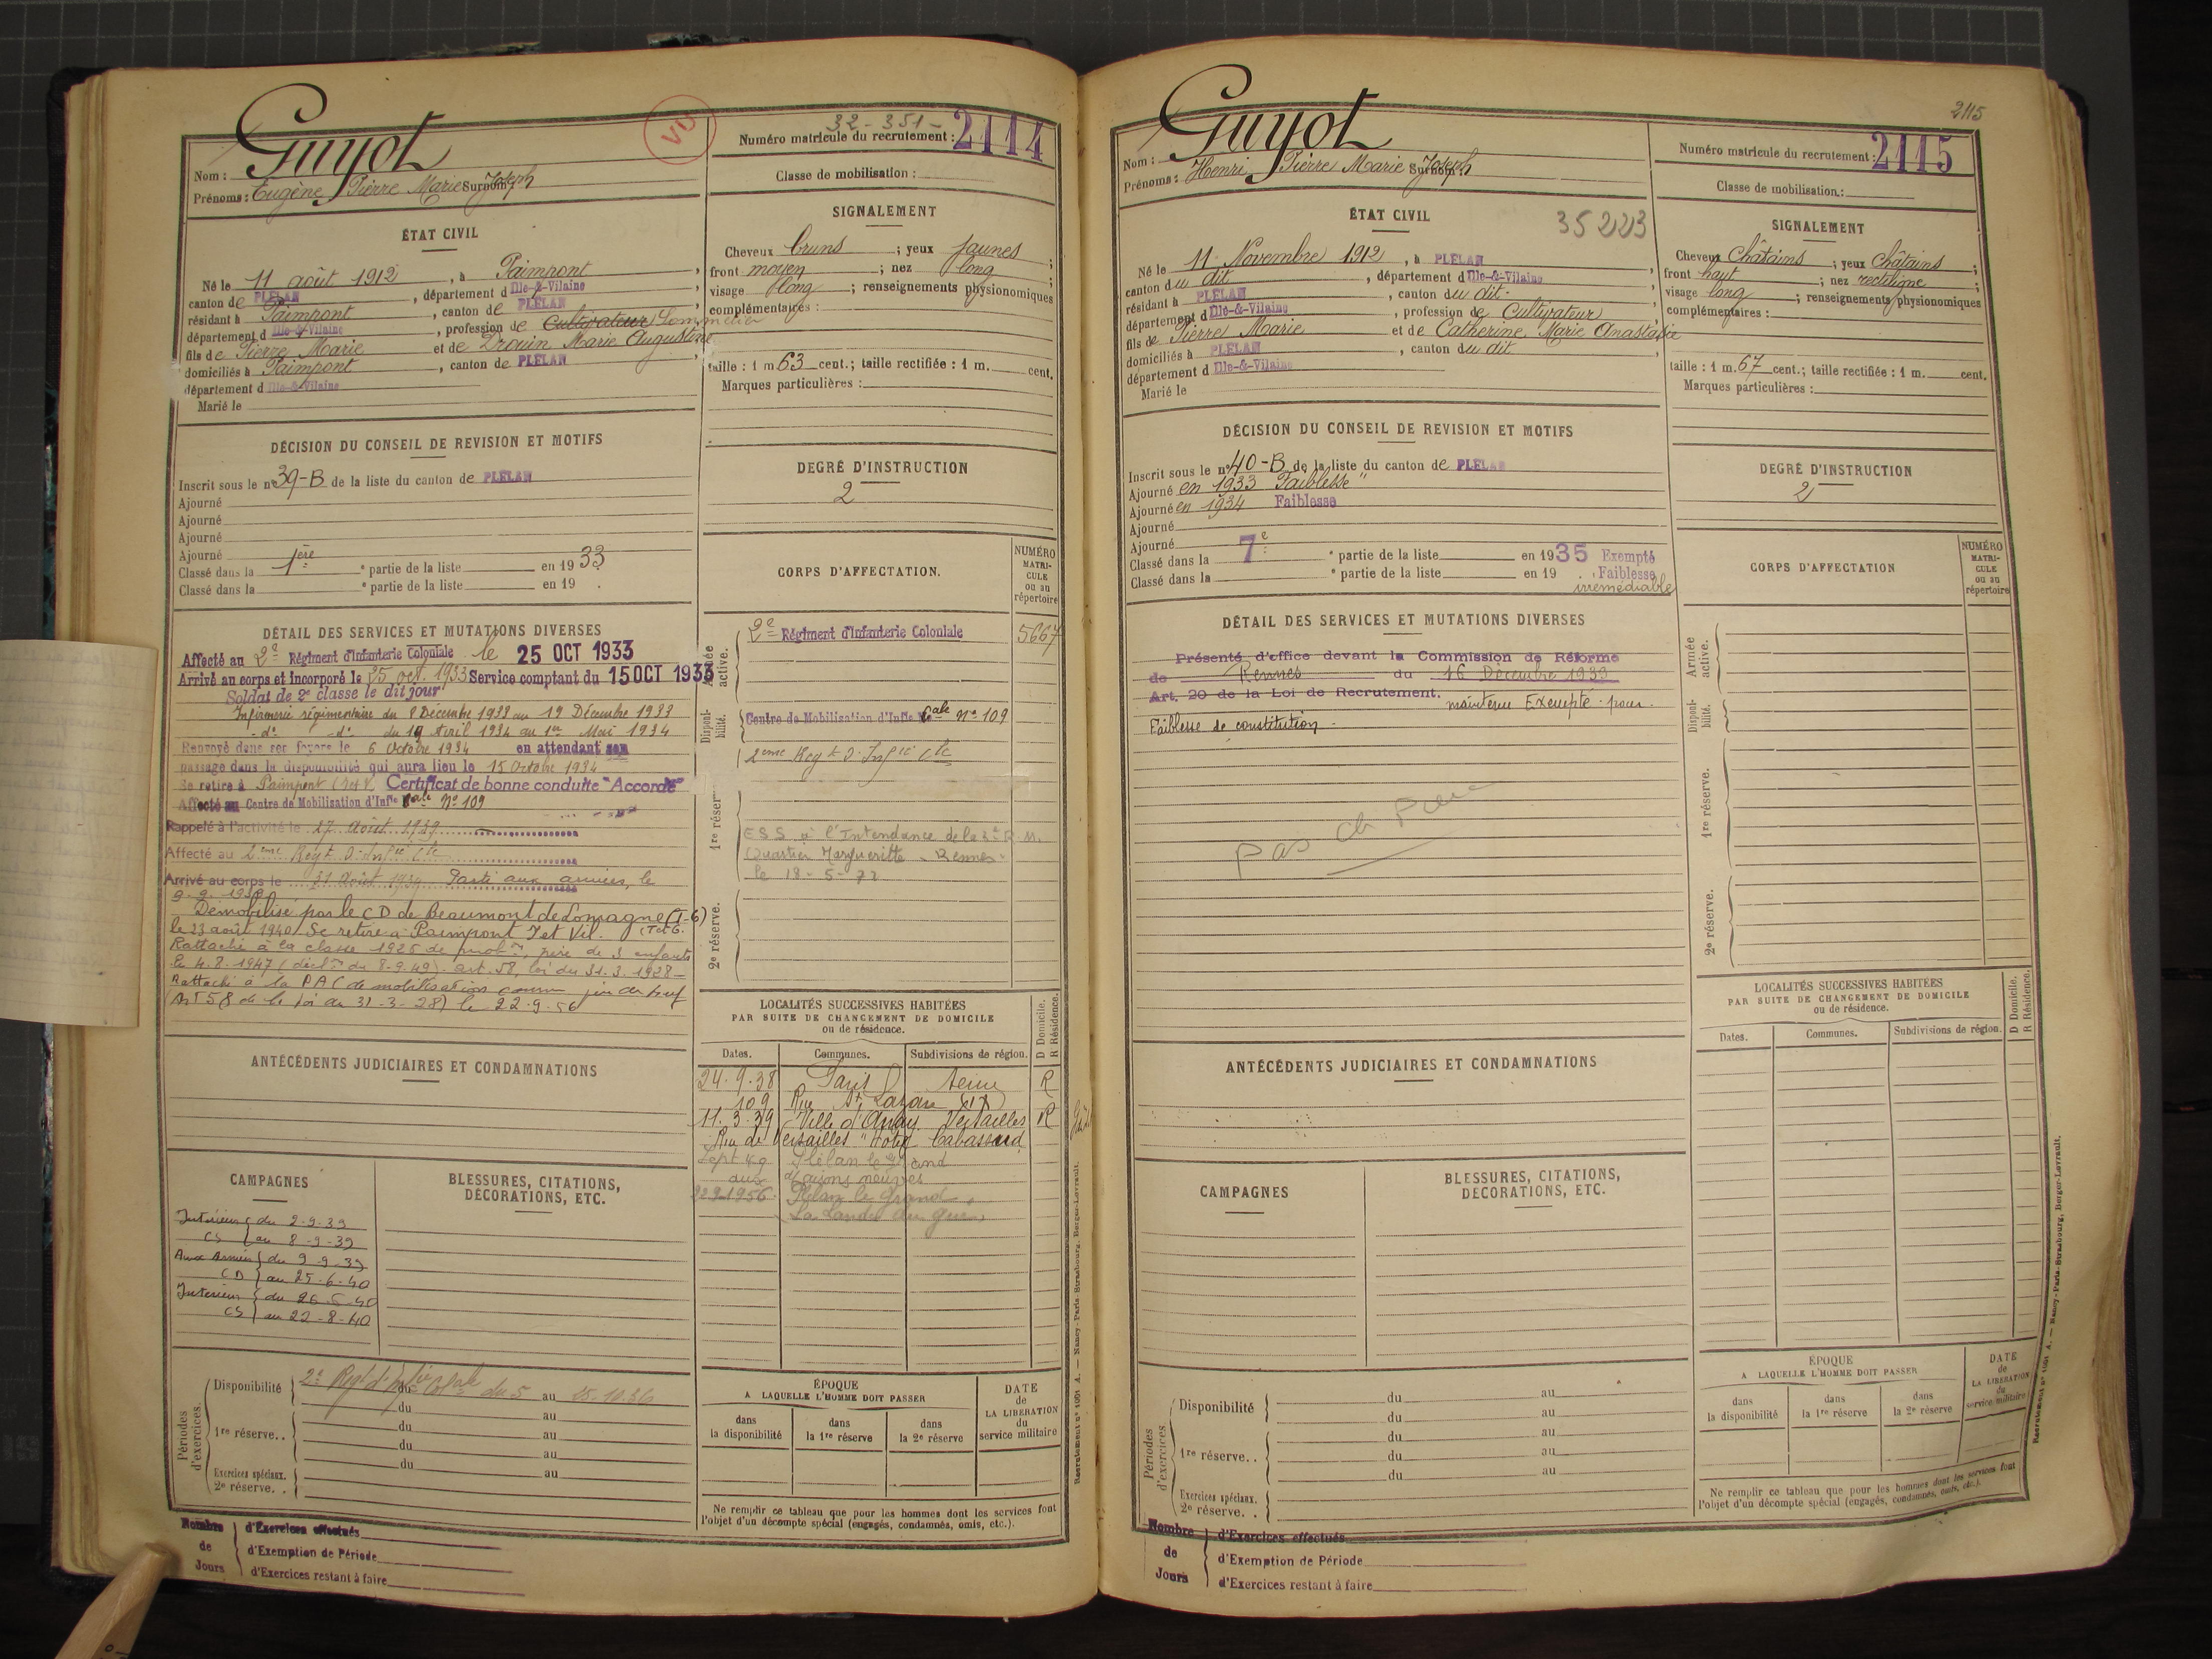 Guyot
VU
32-351-
Numéro matricule du recrutement : 2114
Nom :
Prénoms : Eugène Pierre Marie Joseph Surnom :
Classe de mobilisation :
ÉTAT CIVIL
Né le 11 août 1912, à Paimpont,
canton de PLÉLAN, département d Ille-&-Vilaine,
résidant à Paimpont, canton de PLÉLAN,
département d Ille-&-Vilaine, profession de Cultivateur Sommelier
fils de Pierre Marie et de Drouin Marie Augustine
domiciliés à Paimpont, canton de PLÉLAN,
département d Ille-&-Vilaine
Marié le
SIGNALEMENT
Cheveux bruns ; yeux jaunes ;
front moyen ; nez long ;
visage long ; renseignements physionomiques
complémentaires :
Taille : 1 m 63 cent.; taille rectifiée : 1 m. cent.
Marques particulières :
DÉCISION DU CONSEIL DE REVISION ET MOTIFS
Inscrit sous le n° 39-B de la liste du canton de PLÉLAN
Ajourné
Ajourné
Ajourné
Ajourné
Classé dans la 1ère e partie de la liste en 1933
Classé dans la e partie de la liste en 19 .
DEGRÉ D'INSTRUCTION
2
DÉTAIL DES SERVICES ET MUTATIONS DIVERSES
Affecté au 2e Régiment d'Infanterie Coloniale le 25 OCT 1933
Arrivé au corps et incorporé le 25 oct. 1933 Service comptant du 15 OCT 1933
Soldat de 2e classe le dit jour
Infirmerie régimentaire du 8 Décembre 1933 au 19 Décembre 1933
-d°- -d°- du 19 Avril 1934 au 1er Mai 1934
Renvoyé dans ses foyers le 6 Octobre 1934 en attendant son
passage dans la disponibilité qui aura lieu le 15 Octobre 1934
Se retire à Paimpont (I et V. Certificat de bonne conduite "Accordé"
Affecté au Centre de Mobilisation d'Infie Cale N° 109
Rappelé à l'activité le 27 Août 1939
Affecté au 2ème Regt d'Infie Cle
Arrivé au corps le 31 Août 1939 Parti aux armées, le
9-9-1939
Démobilisé par le CD de Beaumont de Lomagne (T-G)
le 23 août 1940 Se retire à Paimpont I et Vil. (T et G.
Rattaché à la classe 1926 de mobon, père de 3 enfants
le 4.8.1947 (déclon du 8-9-49). art. 58, loi du 31.3.1928-
Rattaché à la PAC de mobilisation comme père de
(Art 58 de la loi du 31-3-28) le 22-9-56
CORPS D'AFFECTATION.
NUMÉRO MATRICULE ou au répertoire
Armée active.
2e Régiment d'Infanterie Coloniale 5667
Disponibilité.
Centre de Mobilisation d'Infie Cale N° 109
2ème Regt d'Infie Cle
1re réserve.
ESS à l'Intendance de la 3e R.M.
Quartier Margueritte - Rennes -
le 18-5-72
2e réserve.
ANTÉCÉDENTS JUDICIAIRES ET CONDAMNATIONS
LOCALITÉS SUCCESSIVES HABITÉES
PAR SUITE DE CHANGEMENT DE DOMICILE
ou de résidence.
D Domicile.
R Résidence.
Dates. Communes. Subdivisions de région.
24.9.38 Paris Seine R
109 Rue St Lazare
11.3.39 Ville d'Avray Versailles R
Rue de Versailles "Hôtel Cabassud
Sept 49 Plélan le Grand
aux Maisons neuves
22.9.1956. Plélan le Grand
La Lande du gué
CAMPAGNES
Intérieur du 2-9-39
CS au 8-9-39
Aux Armées du 9-9-39
CD au 25-6-40
Intérieur du 26-6-40
CS au 22-8-40
BLESSURES, CITATIONS,
DÉCORATIONS, ETC.
Périodes d'exercices.
Disponibilité 2e Regt d'Infie Colale du 5 au 25.10.36
du au
1re réserve.. du au
du au
du au
Exercices spéciaux.
2e réserve. .
ÉPOQUE
A LAQUELLE L'HOMME DOIT PASSER
dans la disponibilité
dans la 1re réserve
dans la 2e réserve
DATE de LA LIBERATION du service militaire
Ne remplir ce tableau que pour les hommes dont les services font
l'objet d'un décompte spécial (engagés, condamnés, omis, etc.).
Nombre de Jours
d'Exercices effectués
d'Exemption de Période
d'Exercices restant à faire
Recrutement n° 1061 A. — Nancy-Paris-Strasbourg, Berger-Levrault.
2115
Guyot
Numéro matricule du recrutement : 2115
Nom :
Prénoms : Henri Pierre Marie Joseph Surnom :
Classe de mobilisation :
ÉTAT CIVIL
35223
Né le 11 Novembre 1912, à PLÉLAN,
canton du dit, département d Ille-&-Vilaine
résidant à PLÉLAN, canton du dit.
département d Ille-&-Vilaine, profession de Cultivateur
fils de Pierre Marie et de Catherine Marie Anastasie
domiciliés à PLÉLAN, canton du dit
département d Ille-&-Vilaine
Marié le
SIGNALEMENT
Cheveux Châtains ; yeux Châtains ;
front haut ; nez rectiligne ;
visage long ; renseignements physionomiques
complémentaires :
Taille : 1 m. 67 cent.; taille rectifiée : 1 m. cent.
Marques particulières :
DÉCISION DU CONSEIL DE REVISION ET MOTIFS
Inscrit sous le n° 40-B de la liste du canton de PLÉLAN
Ajourné en 1933 "Faiblesse"
Ajourné en 1934 Faiblesse
Ajourné
Ajourné
Classé dans la 7e e partie de la liste en 1935 Exempté
Classé dans la e partie de la liste en 19 . Faiblesse
irrémédiable
DEGRÉ D'INSTRUCTION
2
DÉTAIL DES SERVICES ET MUTATIONS DIVERSES
Présenté d'office devant la Commission de Réforme
de Rennes du 16 Décembre 1939
Art. 20 de la Loi de Recrutement. maintenu Exempté pour
Faiblesse de constitution.
pas ch
CORPS D'AFFECTATION
NUMÉRO MATRICULE ou au répertoire
Armée active.
Disponibilité.
1re réserve.
2e réserve.
ANTÉCÉDENTS JUDICIAIRES ET CONDAMNATIONS
LOCALITÉS SUCCESSIVES HABITÉES
PAR SUITE DE CHANGEMENT DE DOMICILE
ou de résidence.
D Domicile.
R Résidence.
Dates. Communes. Subdivisions de région.
CAMPAGNES
BLESSURES, CITATIONS,
DÉCORATIONS, ETC.
Périodes d'exercices
Disponibilité du au
du au
1re réserve. . du au
du au
du au
Exercices spéciaux.
2e réserve. .
ÉPOQUE
A LAQUELLE L'HOMME DOIT PASSER
dans la disponibilité
dans la 1re réserve
dans la 2e réserve
DATE de LA LIBERATION du service militaire
Ne remplir ce tableau que pour les hommes dont les services font
l'objet d'un décompte spécial (engagés, condamnés, omis, etc.).
Nombre de Jours
d'Exercices effectués
d'Exemption de Période
d'Exercices restant à faire
Recrutement n° 1061 A. — Nancy-Paris-Strasbourg, Berger-Levrault.